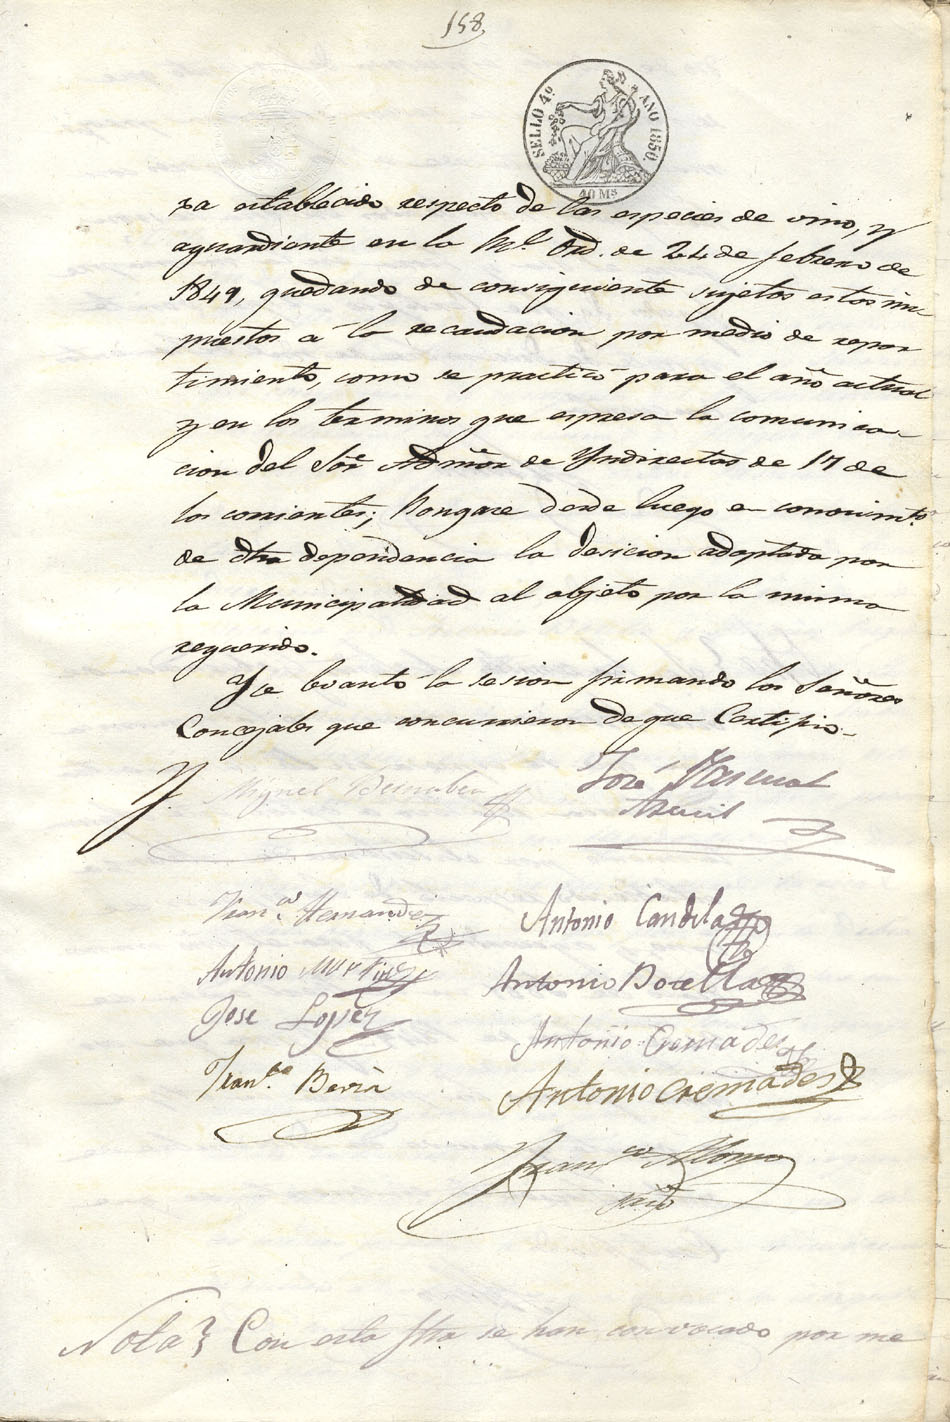 158
SELLO 4º AÑO 1850.
40 Ms
ra establecido respecto de las especies de vino, y
aguardiente en la Rl. Ord. de 24 de febrero de
1849, quedando de consiguiente sujetos estos im-
puestos a la recaudacion por medio de repar
timiento, como se practicó para el año actual
y en los terminos que espresa la comunica-
cion del Sor. Admõr de Yndirectas de 17 de
los corrientes; Pongase desde luego en conocimto.
de dha dependencia la desicion adoptada por
la Municipalidad al objeto por la misma
requerido.
Y se levantó la sesion firmando los Señores
Concejales que concurrieron de que Certifico.-
Miguel Bernabeu
José Pascual
Asucil
Franco. Hernandez
Antonio Candela
Antonio Martinez
Antonio Botella
Jose Lopez
Antonio Cremades
Franco. Bevià
Antonio Cremades
Franco. Alonso
srio
Nota} Con esta fha se han convocado por me